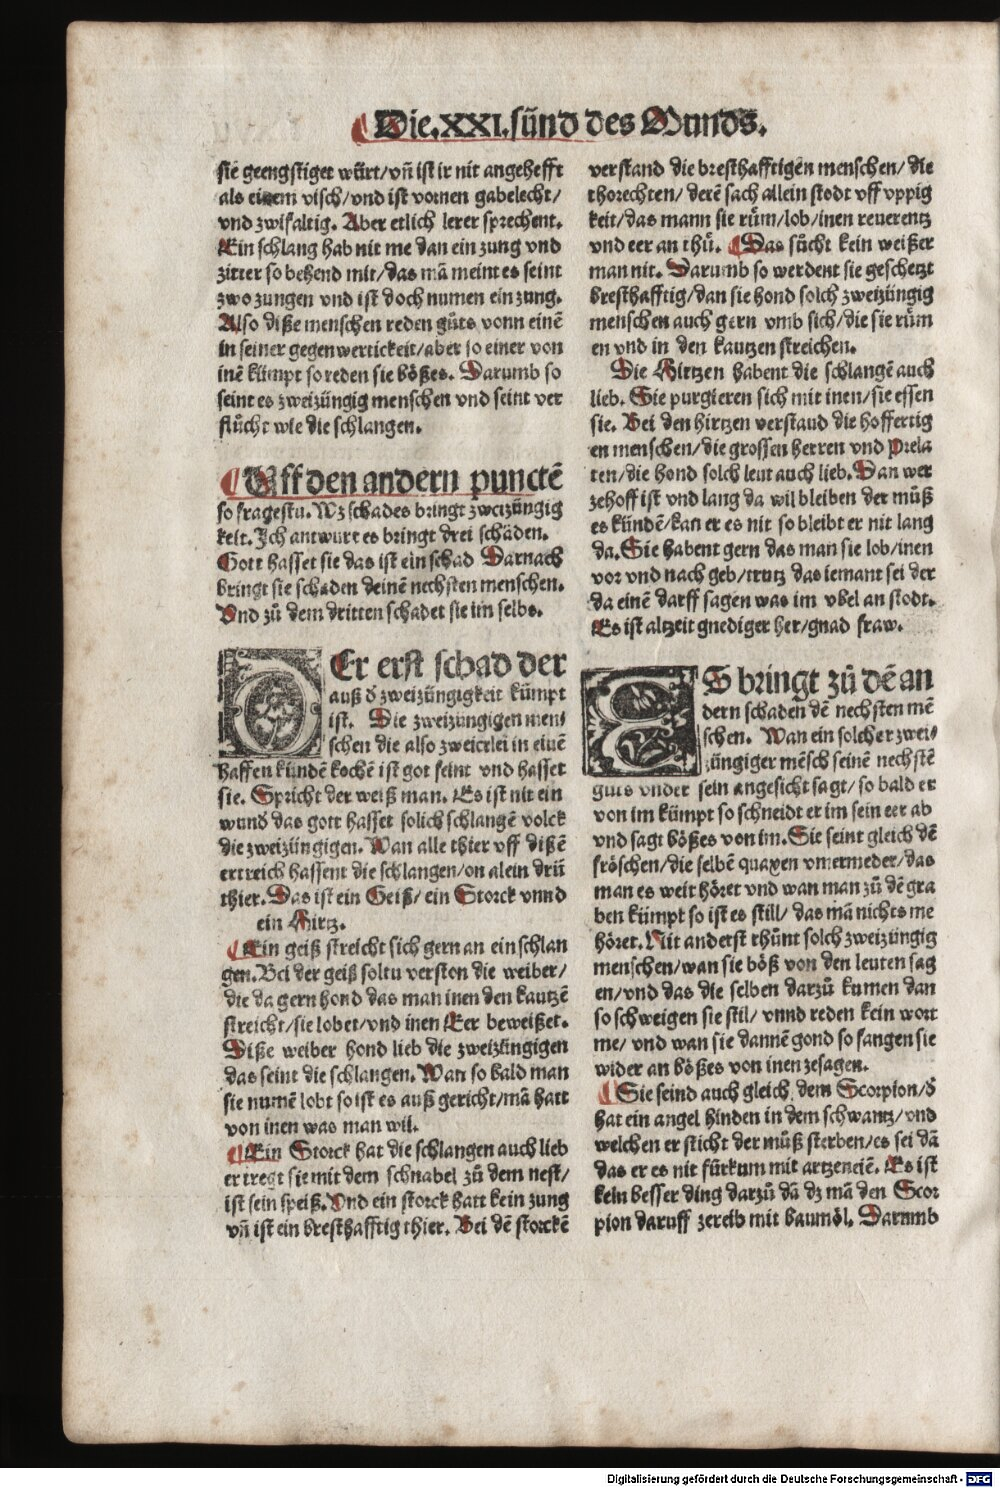 Die.XXI.sünd des Munds.
sie geengstiget würt/vñ ist ir nit angehefft
als einem visch/vnd ist vornen gabelecht/
vnd zwifaltig. Aber etlich lerer sprechent.
Ein schlang hab nit me dan ein zung vnd
zitter so behend mit/das mā meint es seint
zwo zungen vnd ist doch numen ein zung.
Also diße menschen reden gůts vonn einē
in seiner gegenwertickeit/aber so einer von
inē kümpt so reden sie bößes. Darumb so
seint es zweizüngig menschen vnd seint ver
flůcht wie die schlangen.
Uff den andern punctē
so fragestu. Wz schades bringt zweizüngig
keit. Ich antwurt es bringt drei schäden.
Gott hasset sie das ist ein schad Darnach
bringt sie schaden deinē nechsten menschen.
Vnd zů dem dritten schadet sie im selbs.
DEr erst schad der
auß ð zweizüngigkeit kümpt
ist. Die zweizüngigen men/
schen die also zweierlei in einē
haffen kündē kochē ist got feint vnd hasset
sie. Spricht der weiß man. Es ist nit ein
wund das gott hasset solich schlangē volck
die zweizüngigen. Wan alle thier vff dißē
ertreich hassent die schlangen/on alein drü
thier. Das ist ein Geiß/ ein Storck vnnd
ein Hirtz.
Ein geiß streicht sich gern an ein schlan
gen. Bei der geiß soltu verston die weiber/
die da gern hond das man inen den kautzē
streicht/sie lobet/vnd inen Eer beweißet.
Diße weiber hond lieb die zweizüngigen
das seint die schlangen. Wan so bald man
sie numē lobt so ist es auß gericht/mā hatt
von inen was man wil.
Ein Storck hat die schlangen auch lieb
er tregt sie mit dem schnabel zů dem nest/
ist sein speiß. Vnd ein storck hatt kein zung
vñ ist ein bresthafftig thier. Bei dē storckē
verstand die bresthafftigen menschen/ die
thorechten/ derē sach allein stodt vff vppig
keit/das mann sie rům/lob/inen reuerentz
vnd eer an thů. Das sůcht kein weißer
man nit. Darumb so werdent sie geschetzt
bresthafftig/dan sie hond solch zweizüngig
menschen auch gern vmb sich/die sie rům
en vnd in den kautzen streichen.
Die Hirtzen habent die schlangē auch
lieb. Sie purgieren sich mit inen/sie essen
sie. Bei den hirtzen verstand die hoffertig
en menschen/die grossen herren vnd Prela
ten/die hond solch leut auch lieb. Dan wer
zehoff ist vnd lang da wil bleiben der můß
es kündē/kan er es nit so bleibt er nit lang
da. Sie habent gern das man sie lob/inen
vor vnd nach geb/trutz das iemant sei der
da einē darff sagen was im vbel an stodt.
Es ist altzeit gnediger her/gnad fraw.
ES bringt zů dē an
dern schaden dē nechsten mē
schen. Wan ein solcher zwei/
züngiger mēsch seinē nechstē
guts vnder sein angesicht sagt/ so bald er
von im kümpt so schneidt er im sein eer ab
vnd sagt bößes von im. Sie seint gleich dē
fröschen/die selbē quaxen vnermeder/das
man es weit höret vnd wan man zů dē gra
ben kümpt so ist es still/ das mā nichts me
höret. Nit anderst thůnt solch zweizüngig
menschen/wan sie böß von den leuten sag
en/vnd das die selben darzů kumen dan
so schweigen sie stil/ vnnd reden kein wort
me/ vnd wan sie dannē gond so fangen sie
wider an bößes von inen zesagen.
Sie seind auch gleich dem Scorpion/ð
hat ein angel hinden in dem schwantz/vnd
welchen er sticht der můß sterben/es sei dā
das er es nit fürkum mit artzeneiē. Es ist
kein besser ding darzů dā dz mā den Scor
pion daruff zereib mit baumöl. Darumb
Digitalisierung gefördert durch die Deutsche Forschungsgemeinschaft - DFG